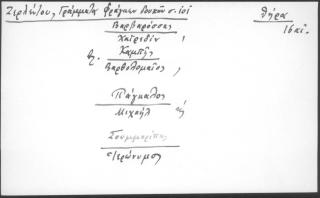 Ζερλέντου, Γράμματα Φράγκων Δουκών σ. ιοί
Θήρα
16 αι.
Βαρβαρόσσας
Χαϊρεδίν,
βλ. Καμπής
Βαρθολομαίος,
Πάγκαλος
Μιχαήλ
Σουμμαρίπας
Ιερώνυμος